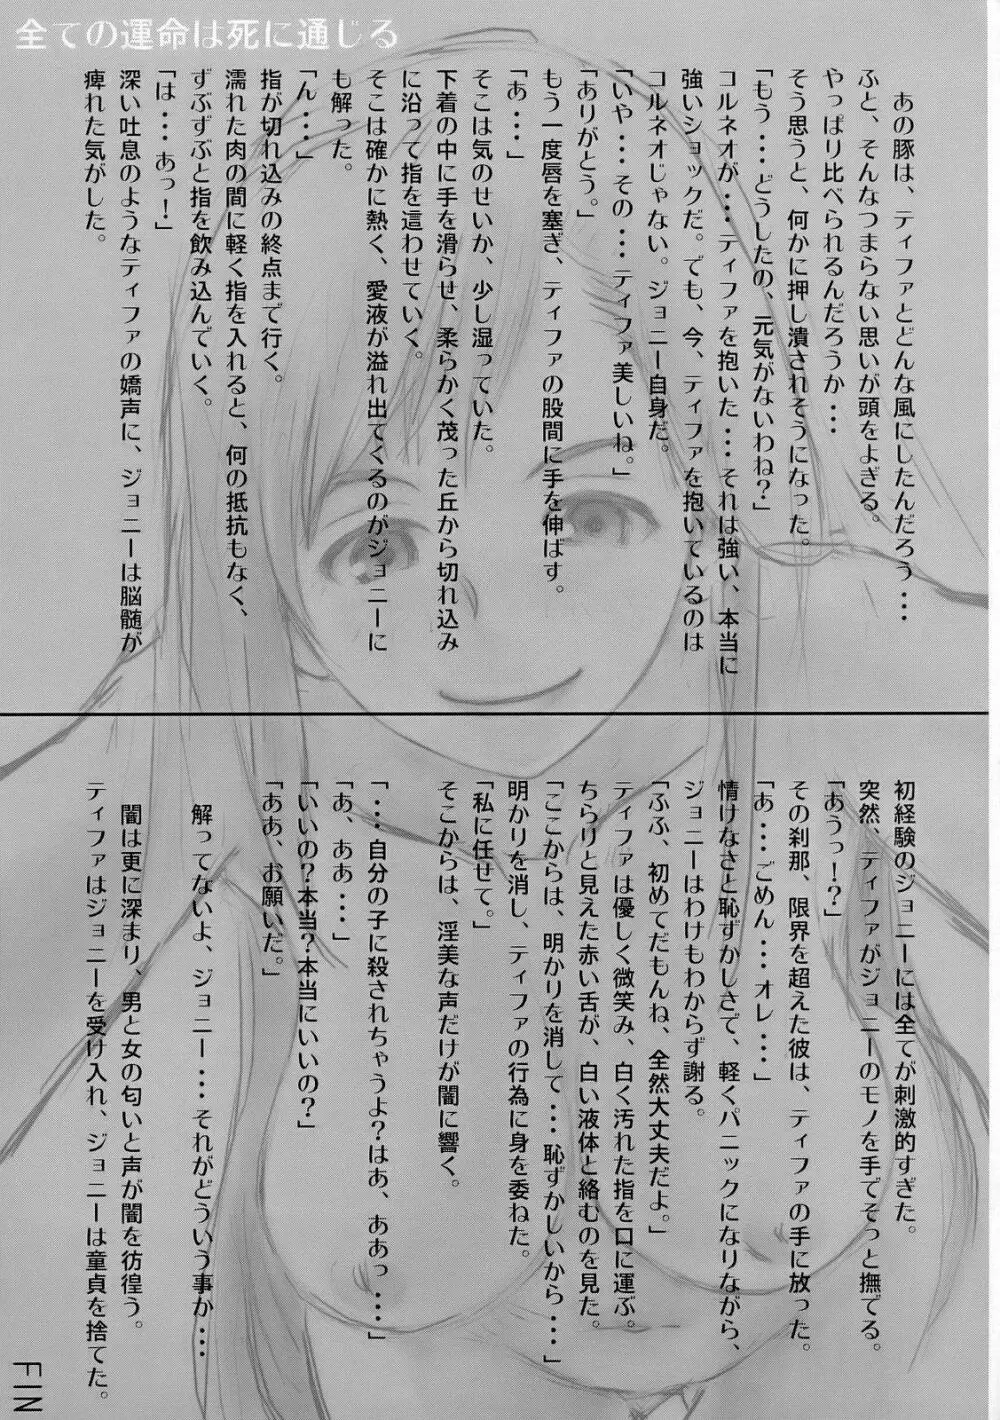 全ての運命は死に通じる
あの豚は、ティファとどんな風にしたんだろう・・・
ふと、そんなつまらない思いが頭をよぎる。
やっぱり比べられるんだろうか・・・
そう思うと、何かに押し潰されそうになった。
「もう・・・どうしたの、元気がないわね？」
コルネオが・・・ティファを抱いた・・・それは強い、本当に
強いショックだ。でも、今、ティファを抱いているのは
コルネオじゃない。ジョニー自身だ。
「いや・・・その・・・ティファ美しいね。」
「ありがとう。」
もう一度唇を塞ぎ、ティファの股間に手を伸ばす。
「あ・・・」
そこは気のせいか、少し湿っていた。
下着の中に手を滑らせ、柔らかく茂った丘から切れ込み
に沿って指を這わせていく。
そこは確かに熱く、愛液が溢れ出てくるのがジョニーに
も解った。
「ん・・・」
指が切れ込みの終点まで行く。
濡れた肉の間に軽く指を入れると、何の抵抗もなく、
ずぶずぶと指を飲み込んでいく。
「は・・・あっ！」
深い吐息のようなティファの嬌声に、ジョニーは脳髄が
痺れた気がした。
初経験のジョニーには全てが刺激的すぎた。
突然、ティファがジョニーのモノを手でそっと撫でる。
「あうっ！？」
その刹那、限界を超えた彼は、ティファの手に放った。
「あ・・・ごめん・・・オレ・・・」
情けなさと恥ずかしさで、軽くパニックになりながら、
ジョニーはわけもわからず謝る。
「ふふ、初めてだもんね、全然大丈夫だよ。」
ティファは優しく微笑み、白く汚れた指を口に運ぶ。
ちらりと見えた赤い舌が、白い液体と絡むのを見た。
「ここからは、明かりを消して・・・恥ずかしいから・・・」
明かりを消し、ティファの行為に身を委ねた。
「私に任せて。」
そこからは、淫美な声だけが闇に響く。
「・・・自分の子に殺されちゃうよ？はあ、ああっ・・・」
「あ、ああ・・・」
「いいの？本当？本当にいいの？」
「ああ、お願いだ。」
解ってないよ、ジョニー・・・それがどういう事か・・・
闇は更に深まり、男と女の匂いと声が闇を彷徨う。
ティファはジョニーを受け入れ、ジョニーは童貞を捨てた。
FIN